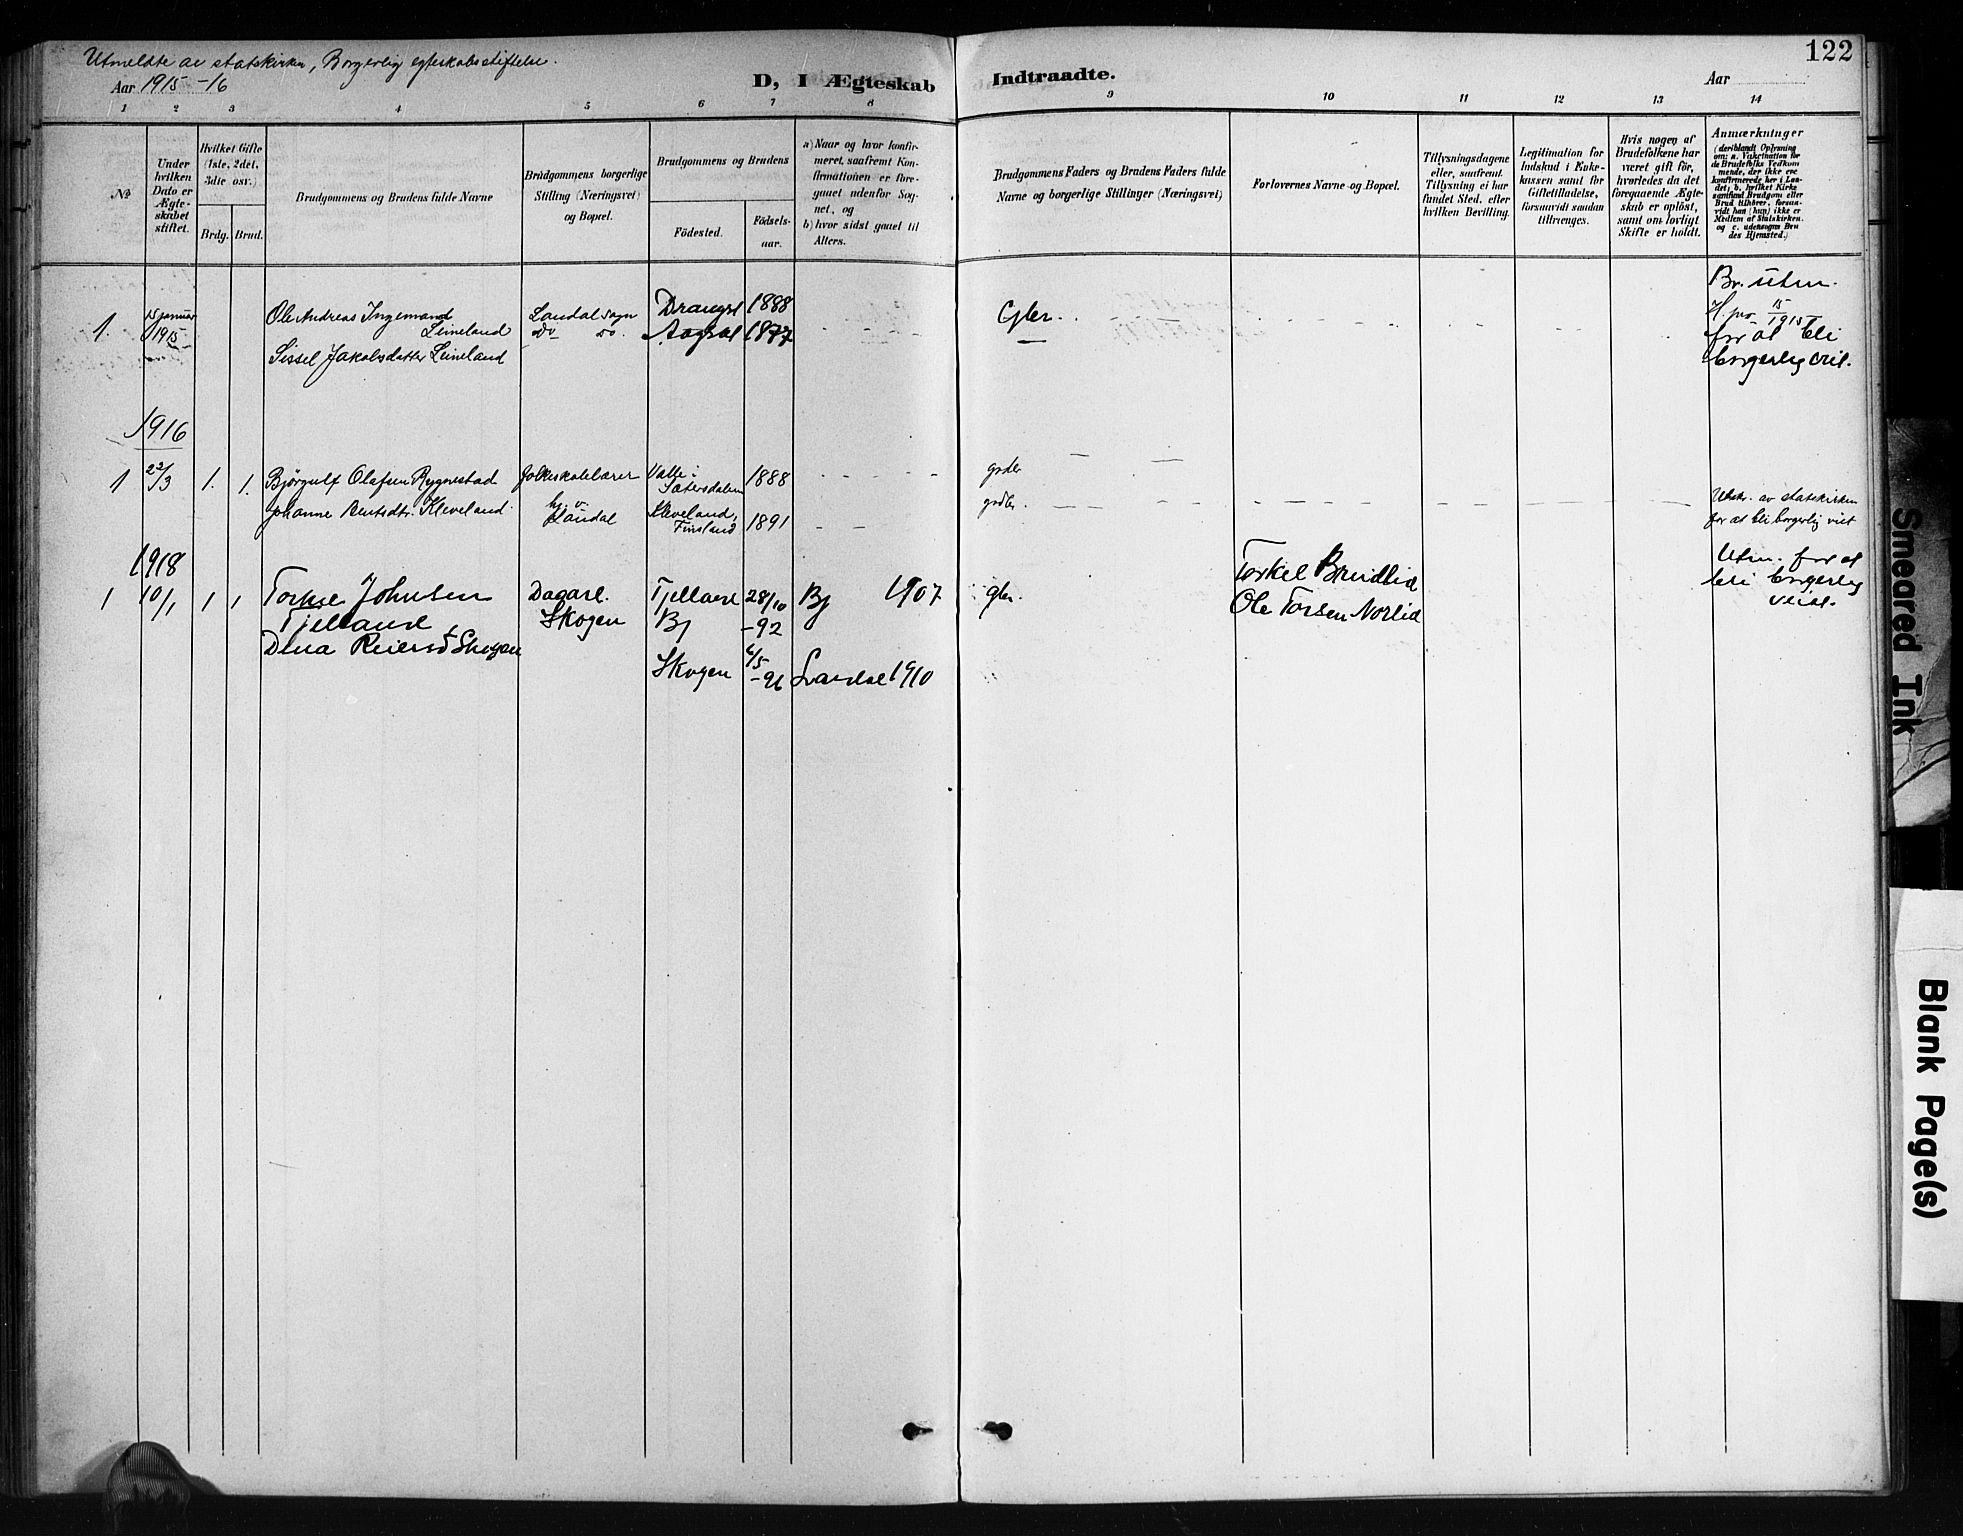 Utmeldte av statskirken, Borgerlig egteskabsstiftelse.
122
Aar 1915-16
D, I Ægteskab
Indtraadte.
Aar
1 2 3 4 5 6 7 8 9 10 11 12 13 14
No
Under hvilken Dato er Ægteskabet stiftet.
Hvilket Gifte (1ste, 2det, 3die osv.)
Brdg. Brud.
Brudgommens og Brudens fulde Navne
Brudgommens borgerlige Stilling (Næringsvei) og Bopæl.
Brudgommens og Brudens
Fødested.
Fødselsaar.
a) Naar og hvor konfirmeret, saafremt Konfirmationen er foregaaet udenfor Sognet, og
b) hvor sidst gaaet til Alters.
Brudgommens Faders og Brudens Faders fulde Navne og borgerlige Stillinger (Næringsvei)
Forlovernes Navne og Bopæl.
Tillysningsdagene eller, saafremt Tillysning ei har fundet Sted, efter hvilken Bevilling.
Legitimation for Indskud i Enkekassen samt for Giftetilladelse, forsaavidt saadan tiltrænges.
Hvis nogen af Brudefolkene har været gift før, hvorledes da det foregaaende Ægteskab er opløst, samt om lovligt Skifte er holdt.
Anmærkninger
(deriblandt Oplysning om: a. Vakcination for de Brudefolks Vedkommende, der ikke ere konfirmerede her i Landet; b. hvilket Kirkesamfund Brudgom eller Brud tilhører, forsaavidt han (hun) ikke er Medlem af Statskirken, og c. udensogns Brudes Hjemsted.)
1. 15 januar 1915
Ole Andreas Ingemand Leineland
Sissel Jakobsdatter Leineland
Laudal sogn
Do Do.
Drangsl 1888
1877
Gbr.
Br. utm.
15/1 1915
for at bli
borgerlig viet.
1916
1 22/3 1. 1.
Bjørgulf Olafsen Rygnestad
Johanne Bentsdtr. Kleveland
folkeskolelærer
Laudal
Valle i Sætersdalen 1888
Kleveland, Finsland 1891
grdbr
grdbr.
Utsk. av statskirken
for at bli borgerlig viet
1918
1 10/1 1 1
Johnsen
Dina Reiersd Skogen
Dagarb.
Skogen
28/10 -92
Bj 1907
Skogen
Laudal 1910
gbr.
Torkel Breilid
Ole Torsen Norlid
Utm. for at
bli borgerlig
viet.
Smeared Ink
Blank Page(s)